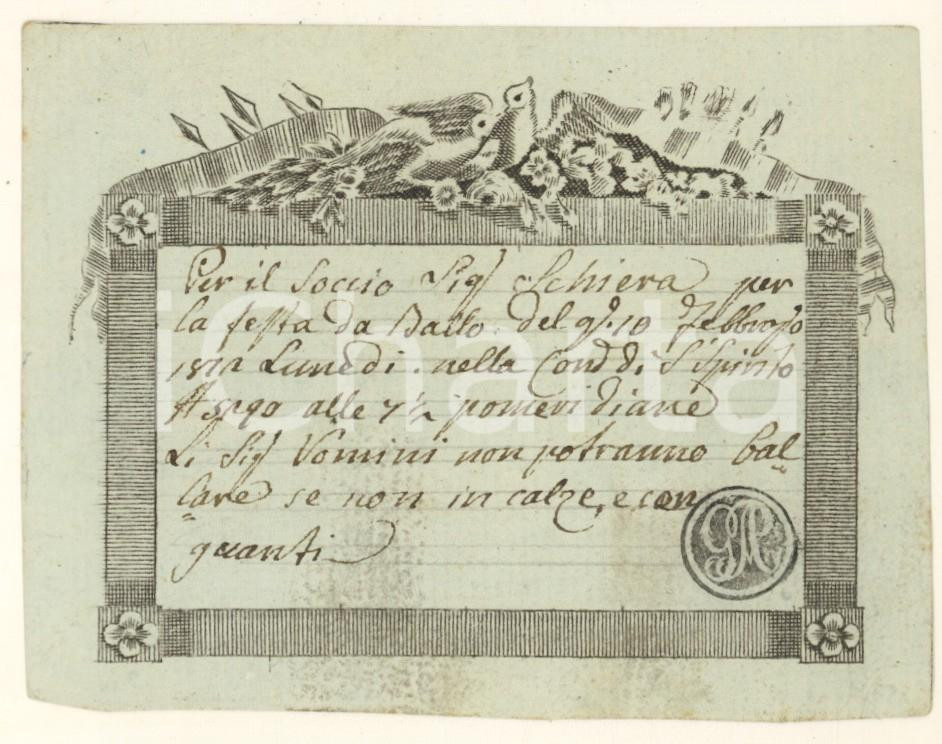 Per il Soccio Sig Schiera per
la festa da Ballo del g. 10 Febbrajo
Lunedi nella Cond di S Spirito
alle 7½ pomeridiane
Li Sig Vomini non potranno bal
lare se non in calze, e con
guanti
GM
iCharta